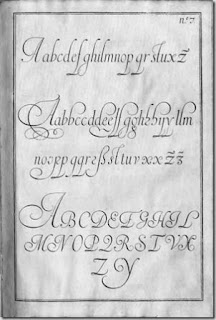 n.º 7.
A a b c d e f g h i l m n o p q r s t u x z
A a b b c c d d e e f f g g h h i i j y l l m
n o p p q q r e ß s t t u v x x z z
A B C D E F G H I L
M N O P Q R S T V X
Z Y